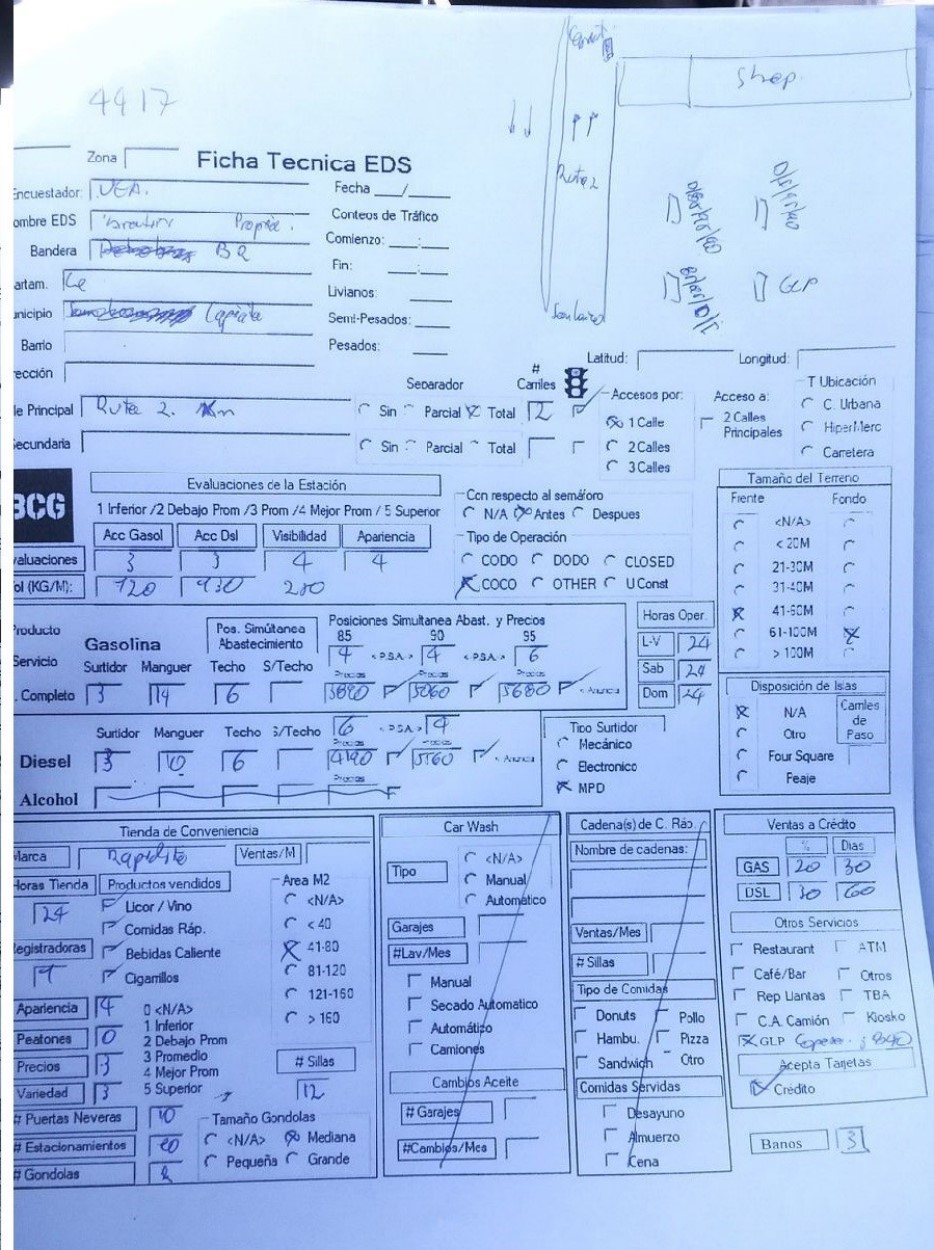 4417
Shop.
Ruta 2
GLP
Zona
Ficha Tecnica EDS
Encuestador: VEA.
Fecha __/__
ombre EDS Propia.
Conteos de Tráfico
Bandera BR
Comienzo: __:__
Fin: __:__
artam. Ce
Livianos:
unicipio Capiata
Semi-Pesados:
Barrio
Pesados:
rección
Latitud: Longitud:
le Principal Ruta 2. Km
Separador
# Carriles
Sin Parcial Total 2
Accesos por:
1 Calle
2 Calles
3 Calles
Acceso a:
2 Calles Principales
T Ubicación
C. Urbana
HiperMerc
Carretera
ecundaria
Sin Parcial Total
BCG
Evaluaciones de la Estación
1 Inferior /2 Debajo Prom /3 Prom /4 Mejor Prom / 5 Superior
Acc Gasol Acc Dsl Visibilidad Apariencia
valuaciones 3 3 4 4
ol (KG/M): 120 130 280
Con respecto al semáforo
N/A Antes Despues
Tipo de Operación
CODO DODO CLOSED
COCO OTHER U Const
Tamaño del Terreno
Frente Fondo
<N/A>
< 20M
21-30M
31-40M
41-60M
61-100M
> 100M
Producto
Servicio
. Completo
Gasolina
Pos. Simútanea Abastecimiento
Surtidor Manguer Techo S/Techo
3 14 6
Posiciones Simultanea Abast. y Precios
85 90 95
4 <PSA> 4 <PSA> 6
Precios Precios Precios
5680 < Anuncia
Horas Oper.
L-V 24
Sab 24
Dom 24
Disposición de Islas
N/A
Otro
Four Square
Peaje
Carriles de Paso
Surtidor Manguer Techo S/Techo
6 <PSA> 4
Precios Precios
Diesel 3 10 6 4190 5160 < Anuncia
Alcohol
Precios
Tipo Surtidor
Mecánico
Electronico
MPD
Tienda de Conveniencia
Marca Rapidito Ventas/M
Horas Tienda
24
Productos vendidos
Licor / Vino
Comidas Ráp.
Bebidas Caliente
Cigarrillos
Registradoras
Area M2
<N/A>
< 40
41-80
81-120
121-160
> 160
Apariencia 4
Peatones 0
Precios 3
Variedad 3
0 <N/A>
1 Inferior
2 Debajo Prom
3 Promedio
4 Mejor Prom
5 Superior
# Sillas
12
# Puertas Neveras 10
# Estacionamientos 20
# Gondolas
Tamaño Gondolas
<N/A> Mediana
Pequeña Grande
Car Wash
Tipo
<N/A>
Manual
Automático
Garajes
#Lav/Mes
Manual
Secado Automatico
Automático
Camiones
Cambios Aceite
# Garajes
#Cambios/Mes
Cadena(s) de C. Ráp.
Nombre de cadenas:
Ventas/Mes
# Sillas
Tipo de Comidas
Donuts Pollo
Hambu. Pizza
Sandwich Otro
Comidas Servidas
Desayuno
Almuerzo
Cena
Ventas a Crédito
% Dias
GAS 20 30
DSL 30 60
Otros Servicios
Restaurant ATM
Café/Bar Otros
Rep Llantas TBA
C.A. Camión Kiosko
GLP
Acepta Tarjetas
Crédito
Banos 3